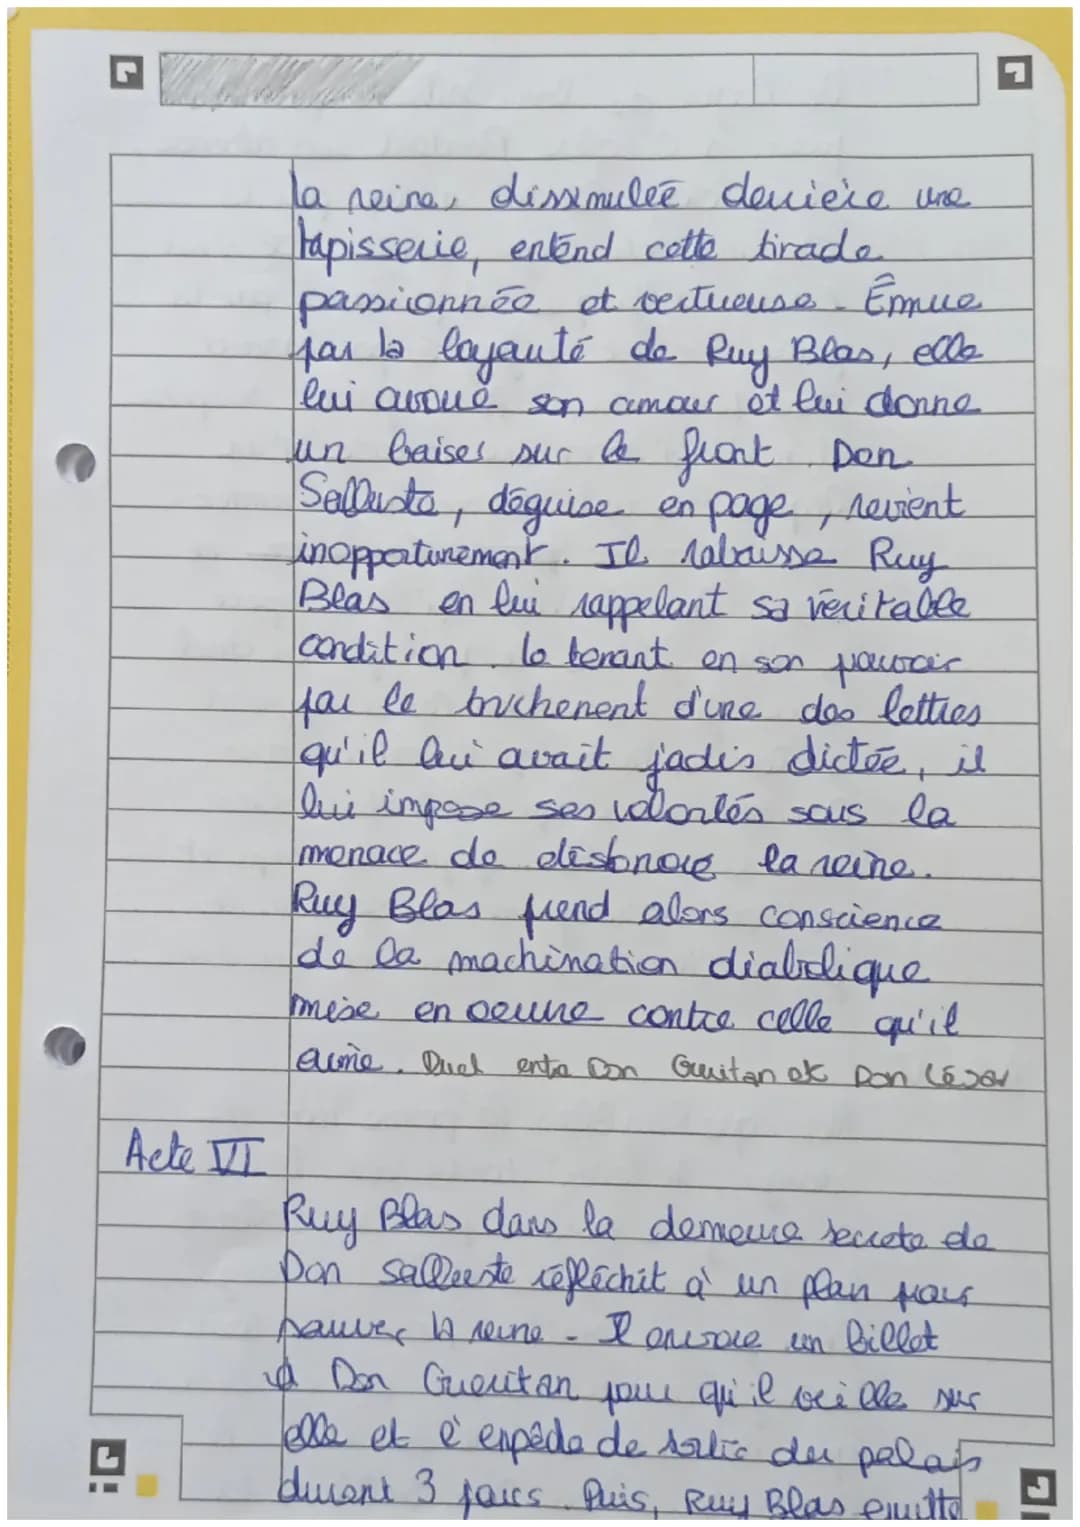 la reine, dissimulée derrière une
tapisserie, entend cette tirade
passionnée et vertueuse. Émue
par la loyauté de Ruy Blas, elle
lui avoue son amour et lui donne
un baiser sur le front. Don
Salluste, déguisé en page, revient
inopportunément. Il rabaisse Ruy
Blas en lui rappelant sa véritable
condition. le tenant en son pouvoir
par le truchement d'une des lettres
qu'il lui avait jadis dictée, il
lui impose ses volontés sous la
menace de la reine.
Ruy Blas prend alors conscience
de la machination diabolique
mise en oeuvre contre celle qu'il
aime. Duel entre Don Guritan et Don César
Acte VI
Ruy Blas dans la demeure secrete de
Don Salluste réfléchit à un plan pour
sauver la reine. Il envoie un billet
à Don Gueritan pour qu'il veille sur
elle et l'empêche de sortir du palais
durant 3 jours. Puis, Ruy Blas quitte